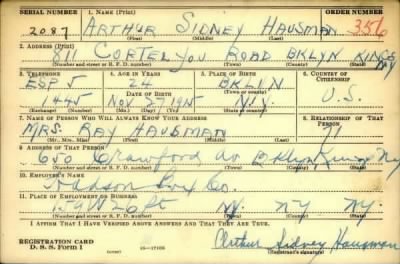 SERIAL NUMBER 1. NAME (Print) ORDER NUMBER
2087 ARTHUR SIDNEY HAUSMAN 356
(First) (Middle) (Last)
2. ADDRESS (Print)
CORTELYOU ROAD BKLYN KINGS NY
(Number and street or R. F. D. number) (Town) (County) (State)
3. TELEPHONE 4. AGE IN YEARS 5. PLACE OF BIRTH 6. COUNTRY OF CITIZENSHIP
ESP 5 24 BKLYN
DATE OF BIRTH (Town or county)
1445 Nov 27 1915 N.Y. U.S.
(Exchange) (Number) (Mo.) (Day) (Yr.) (State or country)
7. NAME OF PERSON WHO WILL ALWAYS KNOW YOUR ADDRESS 8. RELATIONSHIP OF THAT PERSON
MRS. RAY HAUSMAN
(Mr., Mrs., Miss) (First) (Middle) (Last)
9. ADDRESS OF THAT PERSON
650 Crawford av Bklyn Kings Ny
(Number and street or R. F. D. number) (Town) (County) (State)
10. EMPLOYER'S NAME
Box Co.
11. PLACE OF EMPLOYMENT OR BUSINESS
W 26 St NY. NY NY.
(Number and street or R. F. D. number) (Town) (County) (State)
I AFFIRM THAT I HAVE VERIFIED ABOVE ANSWERS AND THAT THEY ARE TRUE.
REGISTRATION CARD
D. S. S. Form 1 16—17105 Arthur Sidney Hausman
(Registrant's signature)